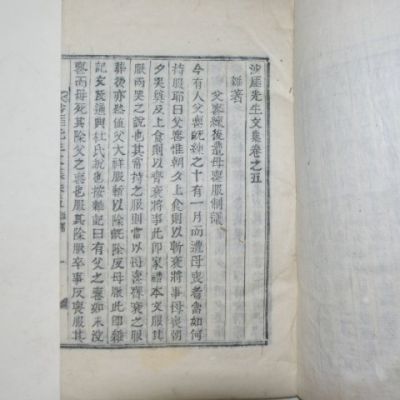 沙厓先生文集卷之五
雜著
父喪練後遭母喪服制議
今有人父喪旣練之十有一月而遭母喪者當如何
持服耶曰父喪惟朝夕上食則以斬衰將事母喪朝
夕哭奠及上食則以齊衰將事此卽家禮本文服其
服而哭之說也其當持之服則當以母喪齊衰之服
葬後亦終値父大祥服斬以除旣除反母服此卽雜
記文及通典杜氏說也按雜記曰有父之喪如未沒
喪而母死其除父之喪也服其除服卒事反喪服其